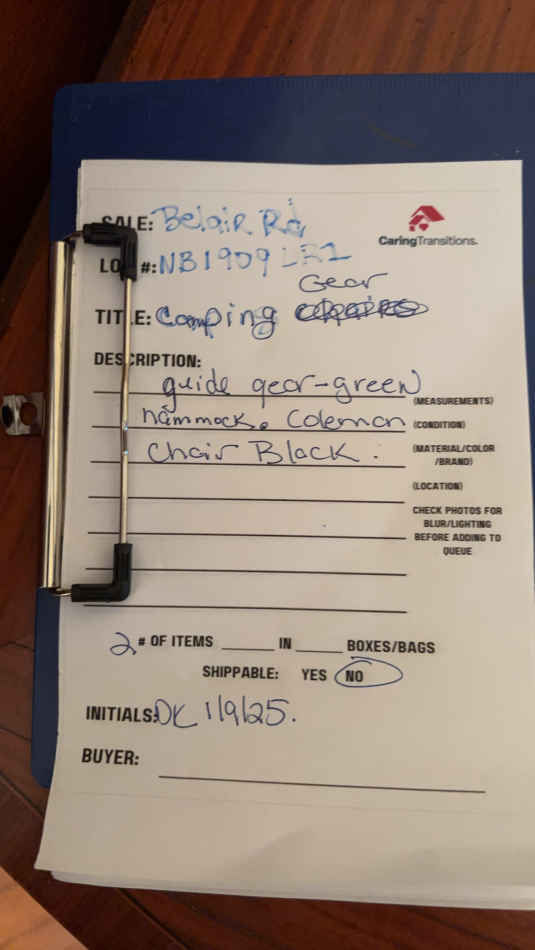 SALE: Belair Rd,
CaringTransitions.
LOT #: NB1909 LR1
Gear
TITLE: Camping
DESCRIPTION:
guide gear-green
(MEASUREMENTS)
hammock. Coleman
(CONDITION)
Chair Black.
(MATERIAL/COLOR
/BRAND)
(LOCATION)
CHECK PHOTOS FOR
BLUR/LIGHTING
BEFORE ADDING TO
QUEUE
2 # OF ITEMS ____ IN ____ BOXES/BAGS
SHIPPABLE: YES NO
INITIALS: DK 1/9/25.
BUYER: